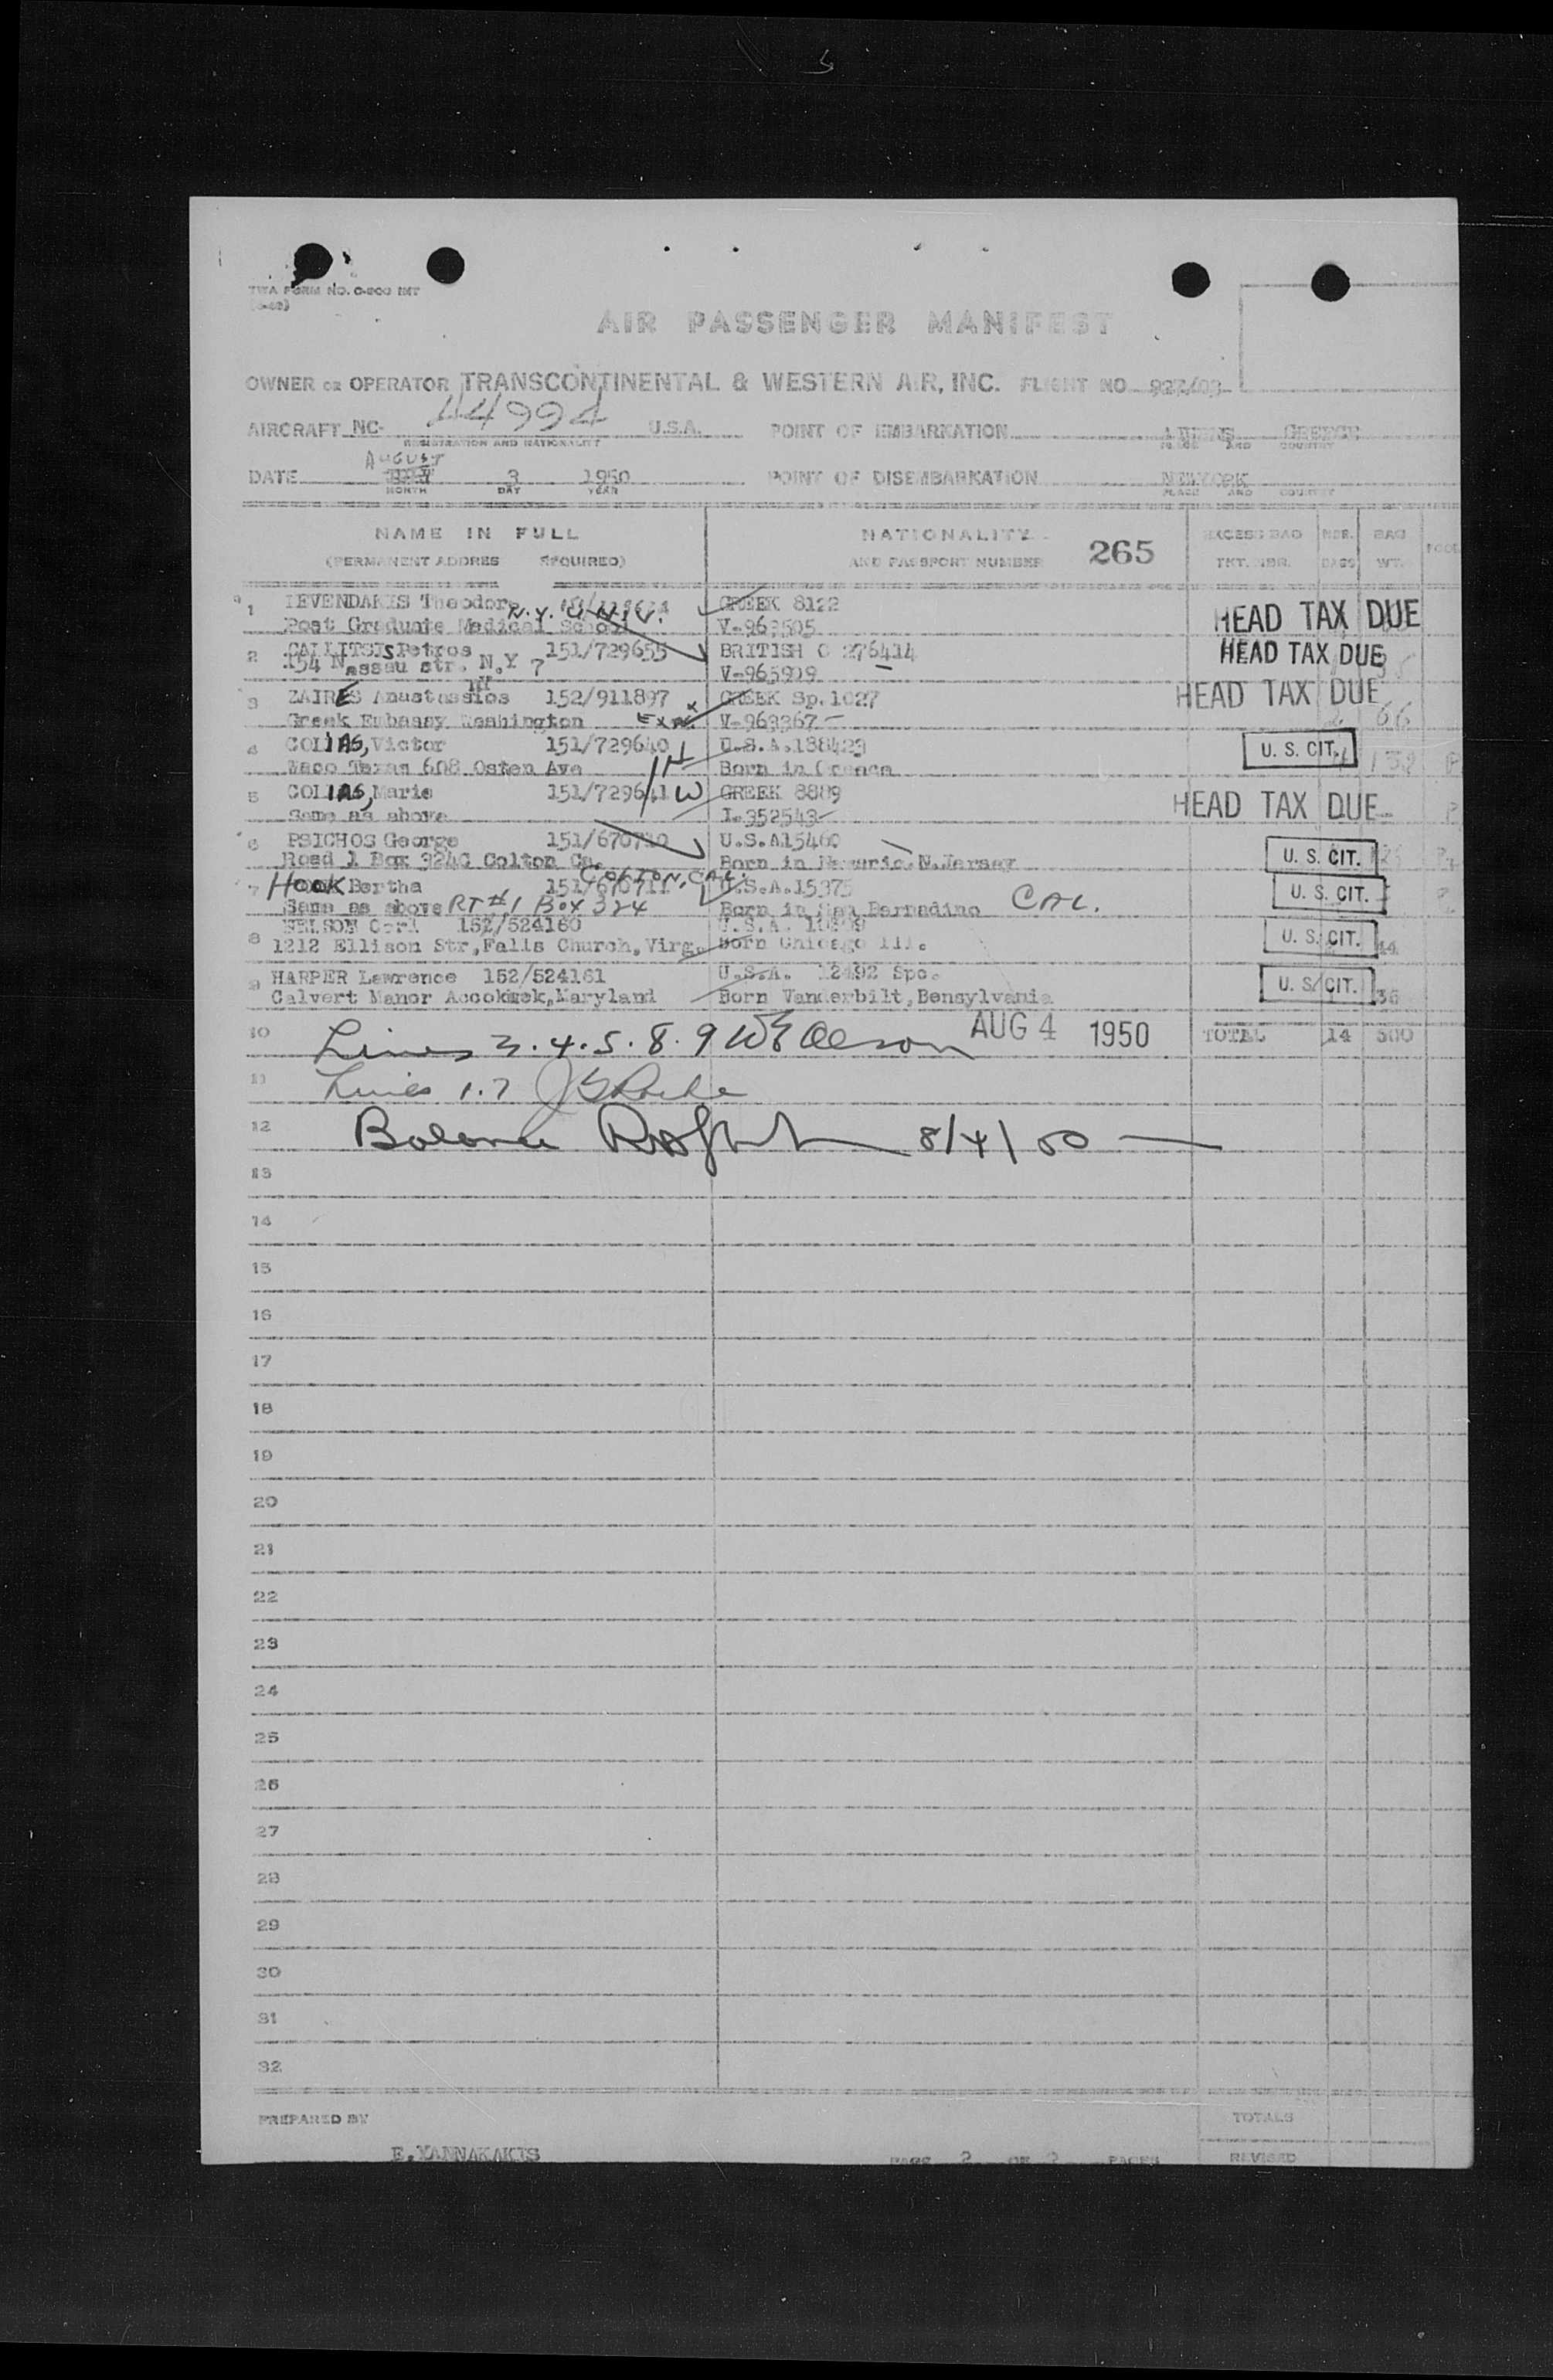 TWA FORM NO. 0-200 INT
AIR PASSENGER MANIFEST
OWNER OR OPERATOR TRANSCONTINENTAL & WESTERN AIR, INC. FLIGHT NO 927/03
AIRCRAFT NC- 44994 U.S.A. POINT OF EMBARKATION ATHENS GREECE
REGISTRATION AND NATIONALITY PLACE AND COUNTRY
AUGUST
DATE 3 1950 POINT OF DISEMBARKATION NEWYORK
MONTH DAY YEAR PLACE AND COUNTRY
NAME IN FULL NATIONALITY EXCESS BAG NBR. BAG
(PERMANENT ADDRES REQUIRED) AND PASSPORT NUMBER 265 TKT. NBR. BAGS WT.
1 LEVENDAKIS Theodore GREEK 8122 HEAD TAX DUE
N.Y. UNIV.
Post Graduate Medical School V-963505
2 CALLITSIS Petros 151/729655 BRITISH C 276414 HEAD TAX DUE
154 Nassau str. N.Y 7 V-965909
3 ZAIRES Anastassios 152/911897 GREEK Sp.1027 HEAD TAX DUE
Greek Embassy Washington V-963367 66
4 COLIAS, Victor 151/729640 U.S.A.188423 U. S. CIT.
Waco Texas 608 Osten Ave Born in Greece
5 COLIAS, Marie 151/729641 W GREEK 8889 HEAD TAX DUE
Same as above I-352543
6 PSICHOS George 151/670710 U.S.A15460 U. S. CIT.
Road 1 Box 324C Colton Ca. Born in N.Jersey
COLTON, CAL.
7 HOOK Bertha 151/670711 U.S.A.15375 U. S. CIT.
Same as above RT #1 BOX 324 Born in San Bernadino CAL.
8 NELSON Carl 152/524160 U.S.A. U. S. CIT.
1212 Ellison Str,Falls Church,Virg. Born Chicago Ill. 44
9 HARPER Lawrence 152/524161 U.S.A. 12492 Spc. U. S. CIT.
Calvert Manor Accokeek,Maryland Born Vanderbilt,Bensylvania 36
10 Lines 3.4.5.8.9 WE Olson AUG 4 1950 TOTAL 14
11 Lines 1.7
12 Balance 8/4/50
13
14
15
16
17
18
19
20
21
22
23
24
25
26
27
28
29
30
31
32
PREPARED BY TOTALS
E.YANNAKAKIS PAGE 2 OF 2 PAGES REVISED